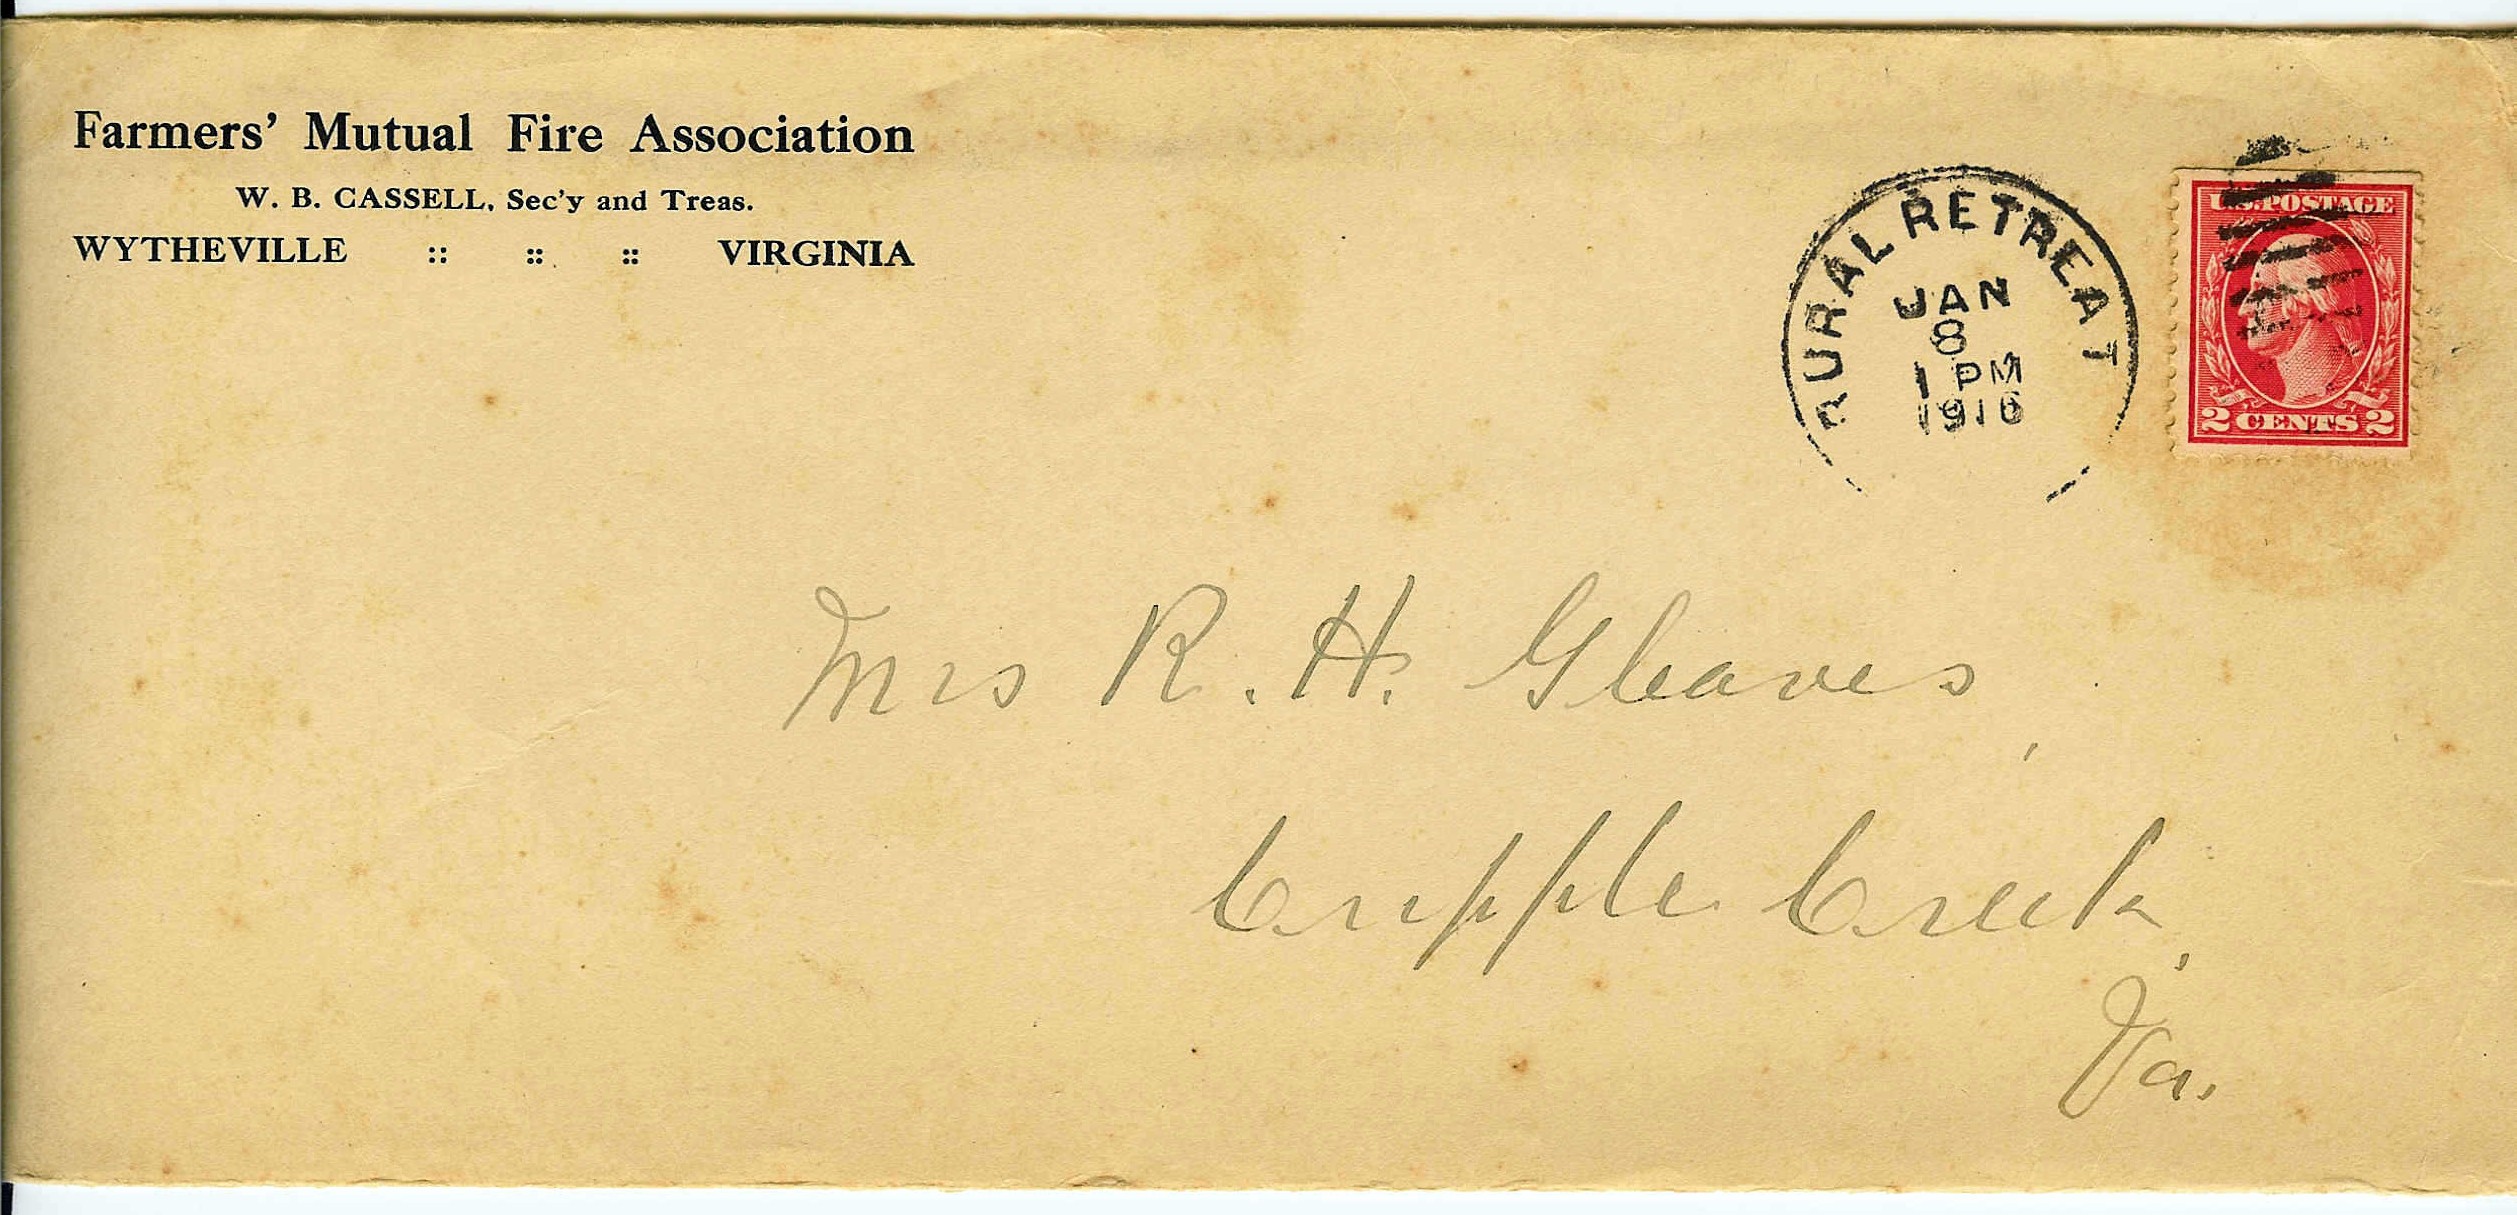 Farmers' Mutual Fire Association
W. B. CASSELL, Sec'y and Treas.
WYTHEVILLE :: :: :: VIRGINIA
RURAL RETREAT
JAN
8
1 PM
1916
U.S. POSTAGE
2 CENTS 2
Mrs R. H. Gleaves,
Cripple Creek,
Va.